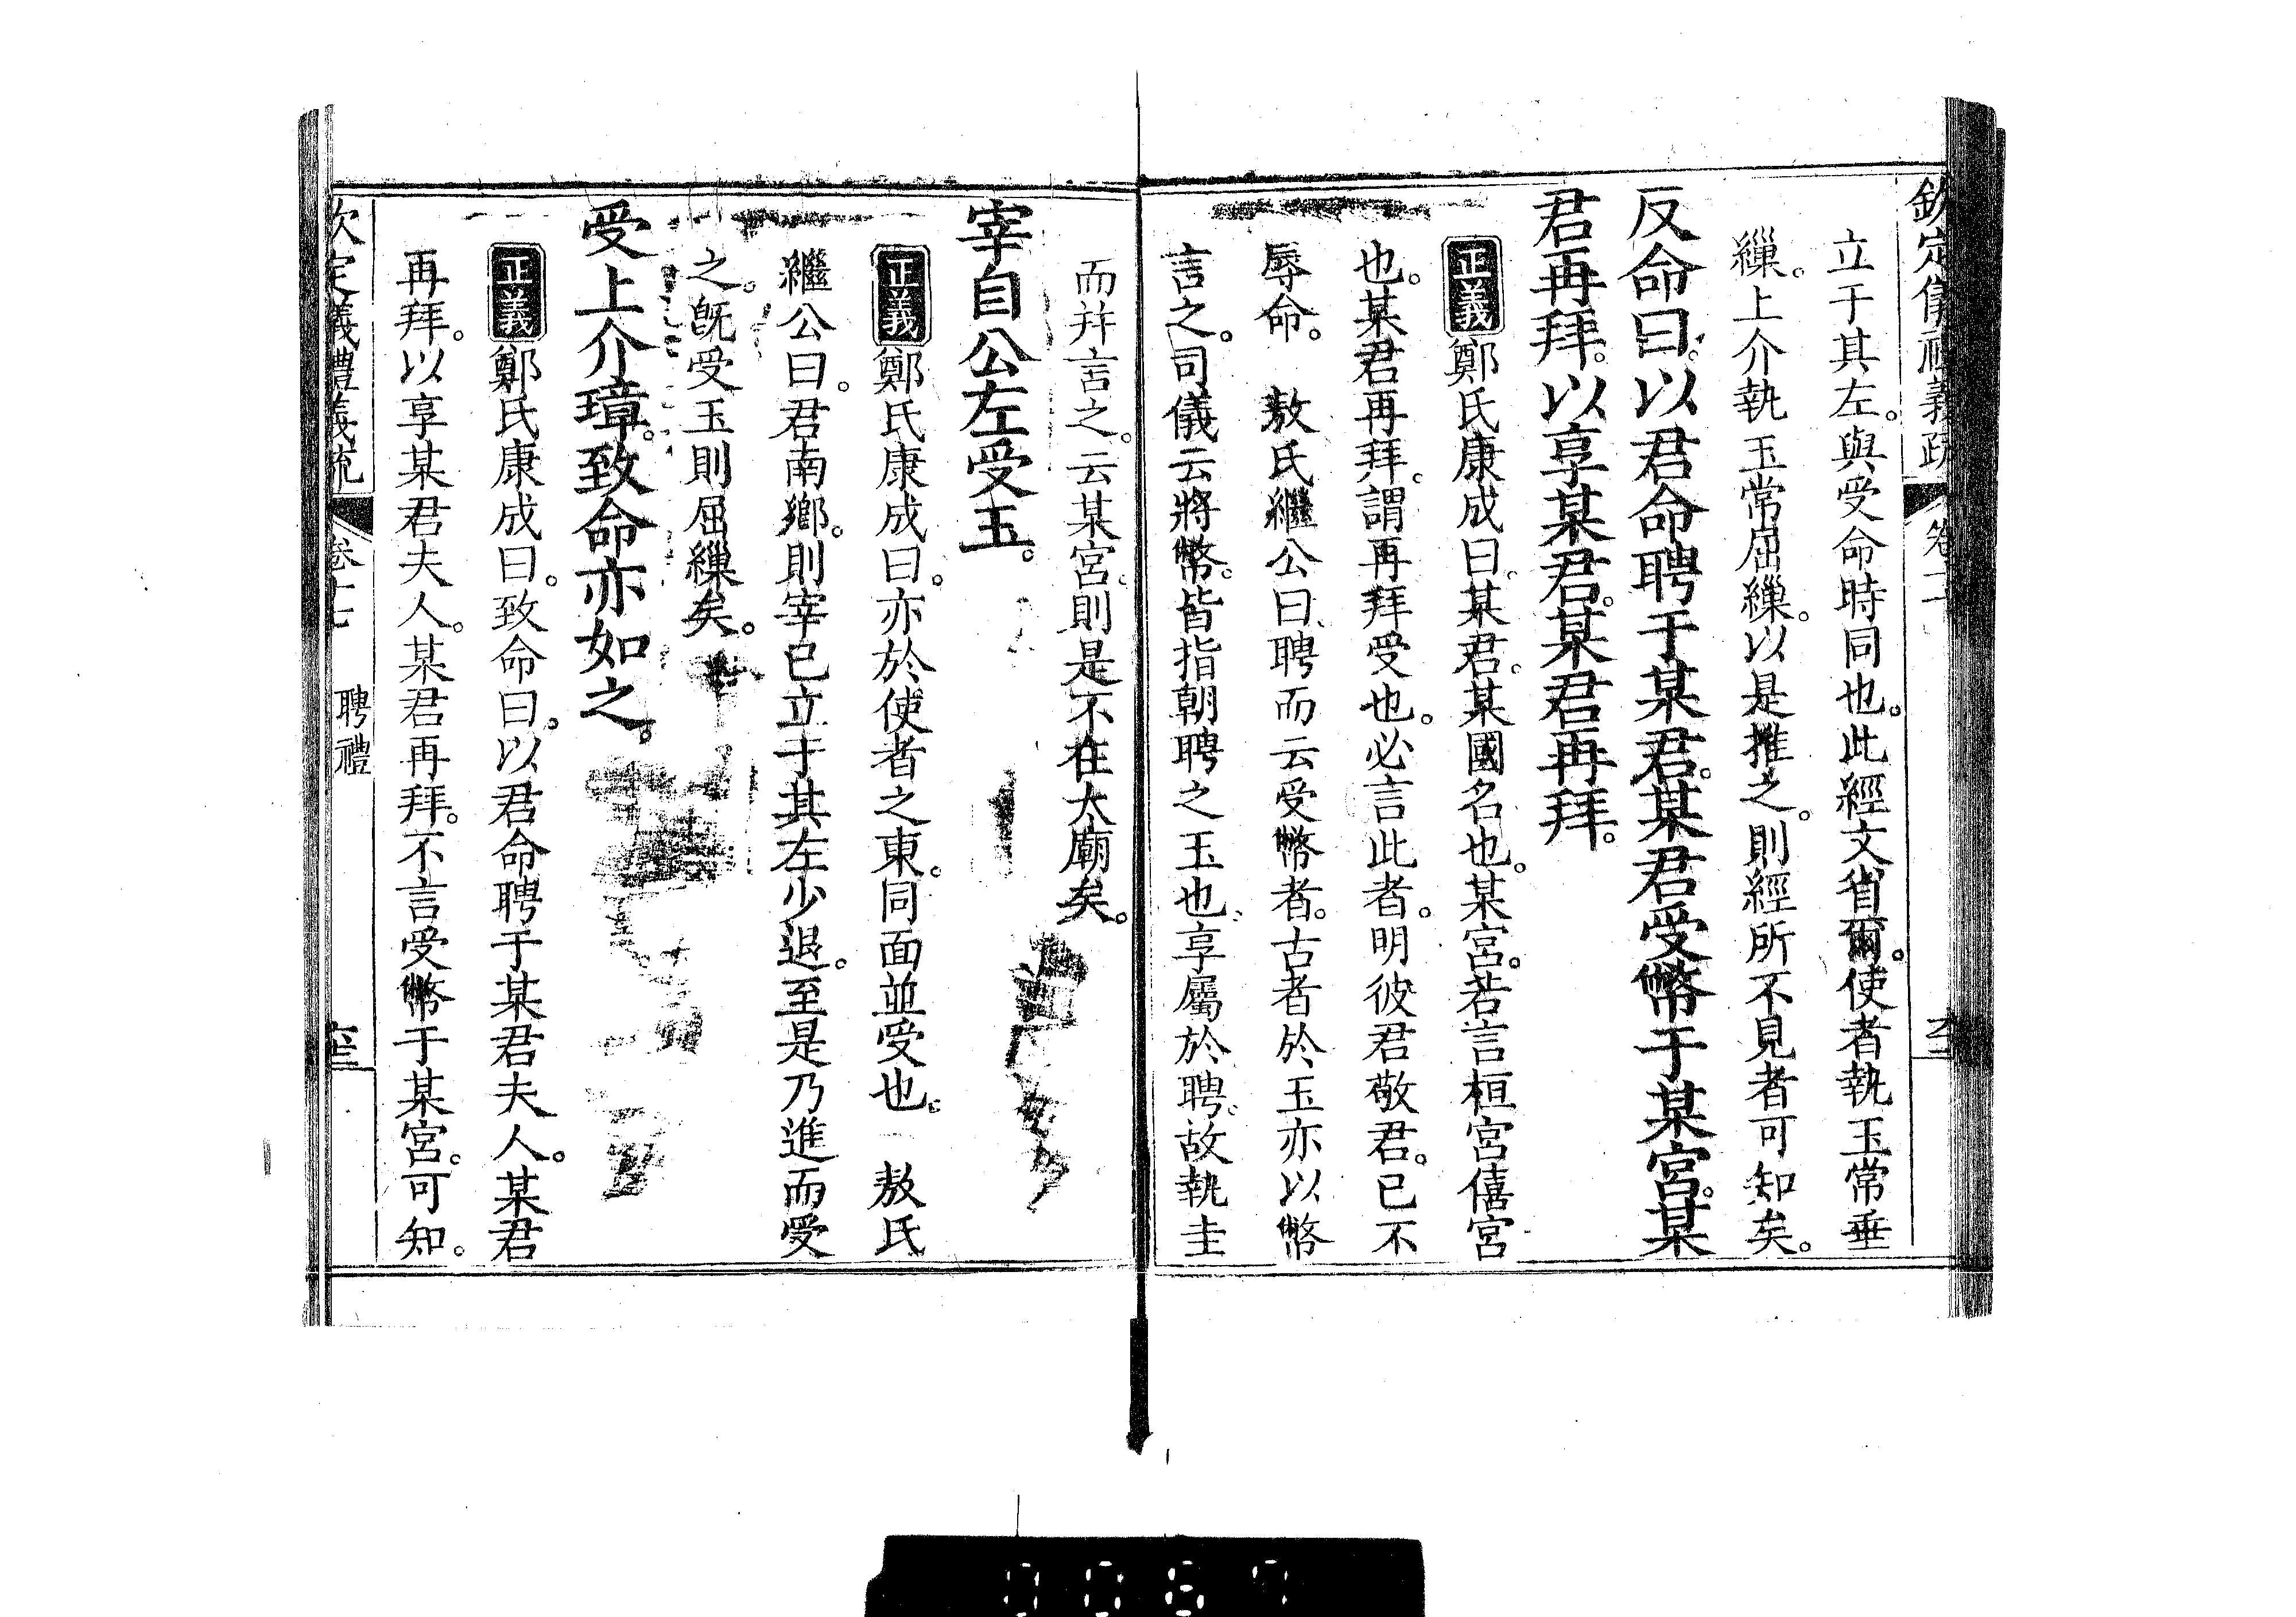 欽定儀禮義疏
立于其左。與受命時同也。此經文省爾。使者執玉常垂
繅。上介執玉常屈繅。以是推之。則經所不見者可知矣。
反命曰。以君命聘于某君。某君受幣于某宮。某
君再拜。以享某君。某君再拜。
正義鄭氏康成曰。某君。某國名也。某宮。若言桓宮僖宮
也。某君再拜。謂再拜受也。必言此者。明彼君敬君。已不
辱命。 敖氏繼公曰、聘而云受幣者。古者於玉亦以幣
言之。司儀云將幣。皆指朝聘之玉也、享屬於聘。故執圭
而幷言之。云某宮。則是不在大廟矣。
宰自公左受玉。
正義鄭氏康成曰。亦於使者之東。同面並受也。 敖氏
繼公曰。君南鄉。則宰已立于其左少退。至是乃進而受
之。旣受玉則屈繅矣。
受上介璋。致命亦如之。
正義鄭氏康成曰。致命曰。以君命聘于某君夫人。某君
再拜。以享某君夫人。某君再拜。不言受幣于某宮。可知。
欽定儀禮義疏 卷十七 聘禮